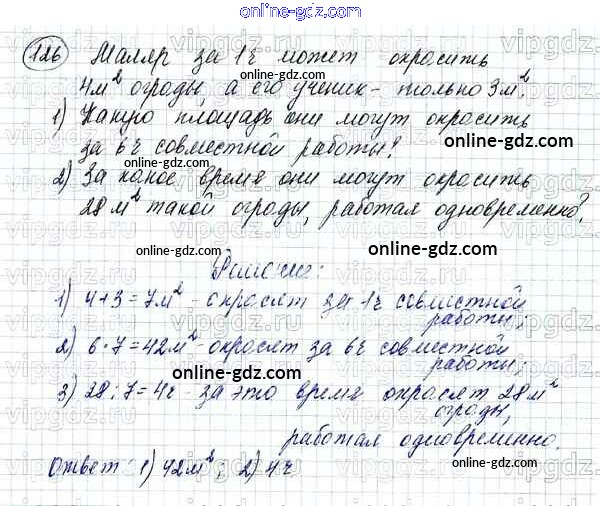 online-gdz.com
126 Маляр за 1ч может окрасить
online-gdz.com
4м² ограды, а его ученик - только 3м².
1) Какую площадь они могут окрасить
online-gdz.com
за 6ч совместной работы?
online-gdz.com
2) За какое время они могут окрасить
28м² такой ограды, работая одновременно?
online-gdz.com
online-gdz.com
Решение:
1) 4+3=7м² - окрасят за 1ч совместной
работы;
online-gdz.com
2) 6·7=42м² - окрасят за 6ч совместной
работы;
online-gdz.com
3) 28:7=4ч - за это время окрасят 28м²
ограды,
online-gdz.com
работая одновременно.
online-gdz.com
Ответ: 1) 42м²; 2) 4ч
online-gdz.com